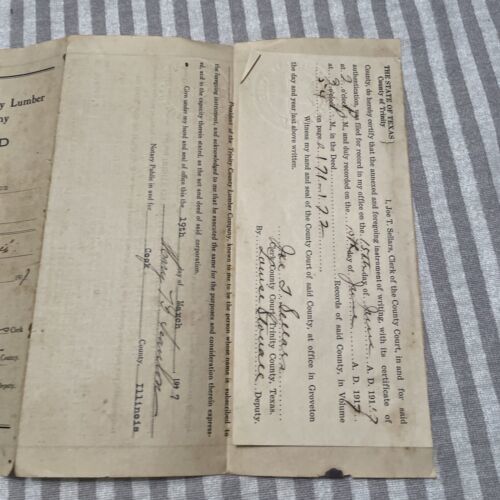 y Lumber
ny
D
191
Clerk
County.
Deputy.
President of the Trinity County Lumber Company, known to me to be the person whose name is subscribed to
the foregoing instrument, and acknowledged to me that he executed the same for the purposes and consideration therein express-
ed, and in the capacity therein stated, as the act and deed of said corporation.
Given under my hand and seal of office this the 19th day of March 1917
Notary Public in and for Cook County, Illinois
THE STATE OF TEXAS }
County of Trinity
I, Joe T. Sellars, Clerk of the County Court, in and for said
County, do hereby certify that the annexed and foregoing instrument of writing, with its certificate of
authentication, was filed for record in my office on the 15th day of June A. D. 1917
at 2 o'clock P M., and duly recorded on the 19th day of June A. D. 1917
at o'clock M., in the Deed Records of said County, in Volume
54 on page 171-172
Witness my hand and seal of the County Court of said County, at office in Groveton
the day and year last above written.
Joe T. Sellars
Clerk County Court, Trinity County, Texas.
By Louise Deputy.